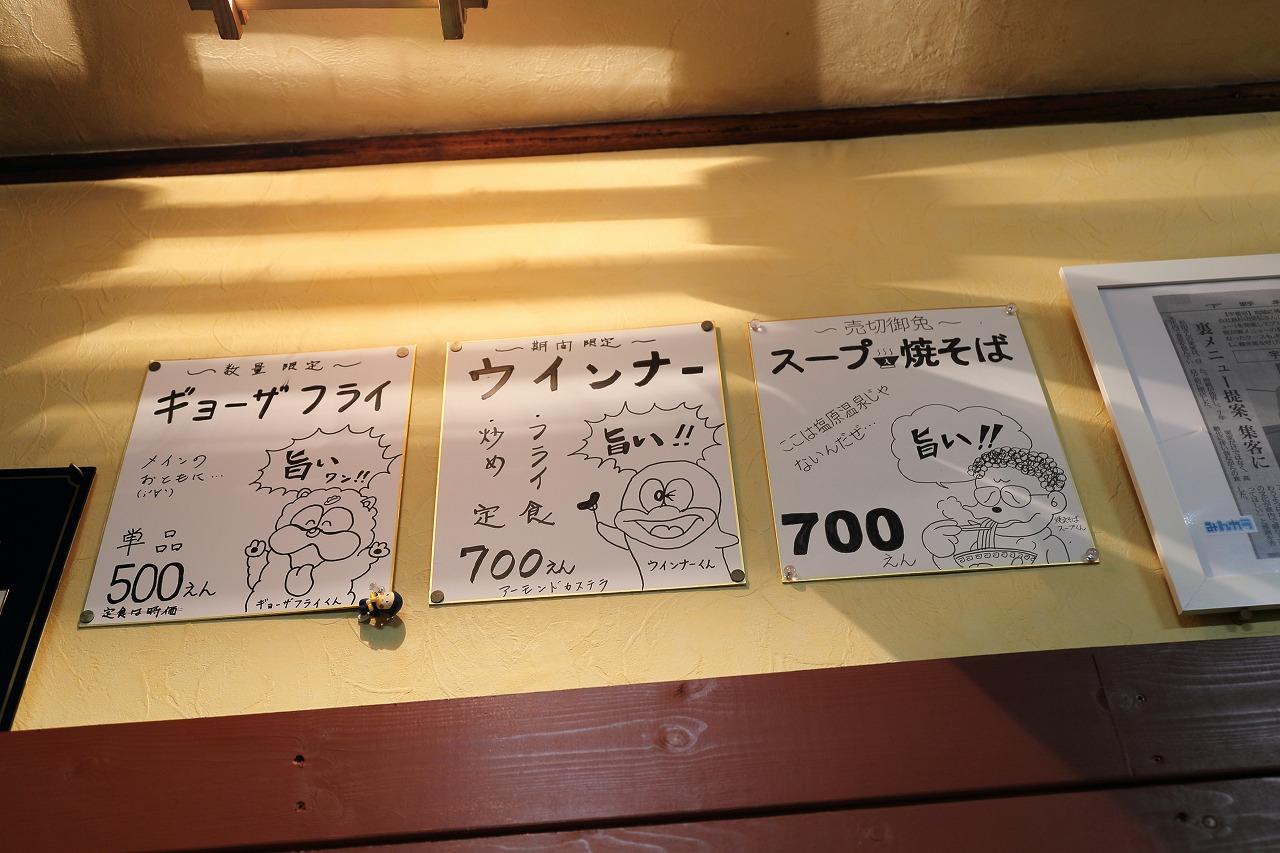 〜数量限定〜
ギョーザフライ
メインの
おともに…
(;'∀')
旨い
ワン!!
単品
500えん
定食は時価
ギョーザフライくん
〜期間限定〜
ウインナー
・フライ
・炒め
定食
旨い!!
700えん
ウインナーくん
アーモンドカステラ
〜売切御免〜
スープ焼そば
ここは塩原温泉じゃ
ないんだぜ…
旨い!!
700
えん
焼そば
スープくん
下野
裏メニュー提案、集客に